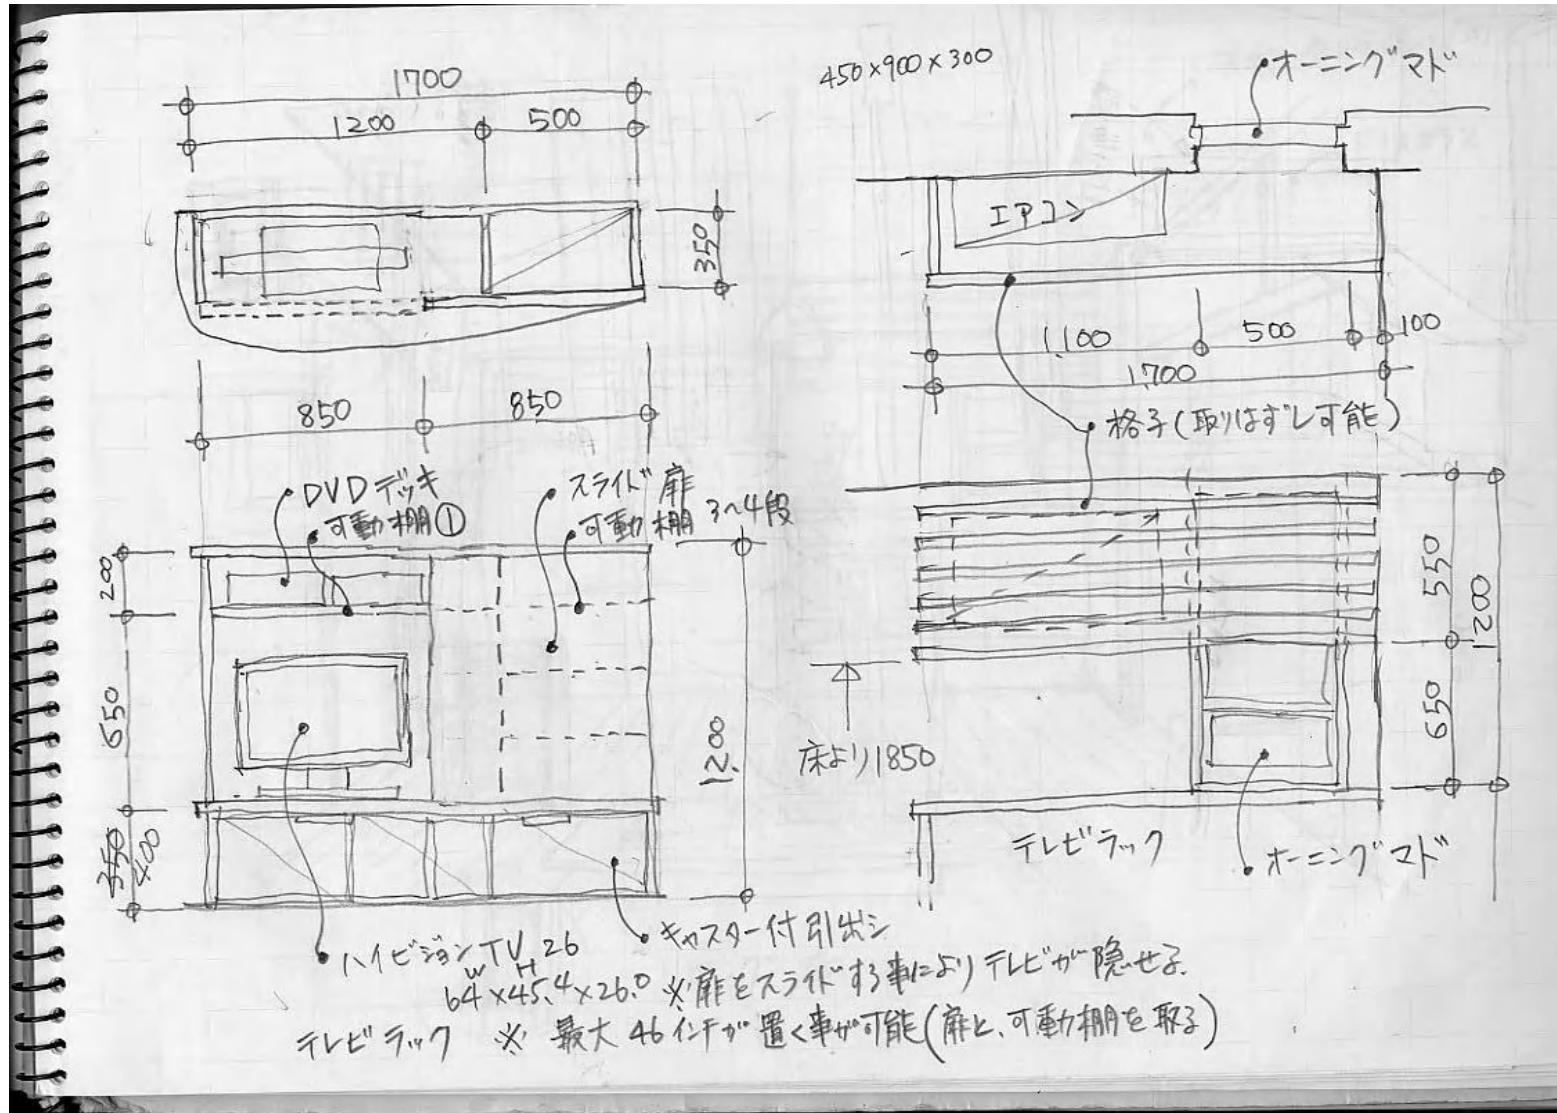 1700
1200
500
350
850
850
DVDデッキ
可動棚①
スライド扉
可動棚 3~4段
200
650
350
400
1,200
ハイビジョンTV 26
W H
64×45.4×26.0
キャスター付引出シ
※扉をスライドする事によりテレビが隠せる.
テレビラック ※ 最大 46インチが置く事が可能(扉と、可動棚を取る)
450×900×300
オーニングマド
エアコン
1,100
500
100
1,700
格子(取りはずし可能)
550
1200
650
床より1850
テレビラック
オーニングマド